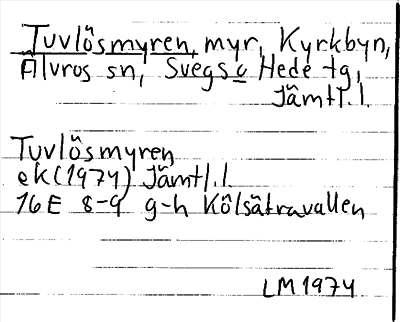 Tuvlösmyren, myr, Kyrkbyn,
Älvros sn, Svegs o Hede tg,
Jämtl.l.
Tuvlösmyren
ek(1974) Jämtl.l.
16E 8-9 g-h Kölsätravallen
LM1974